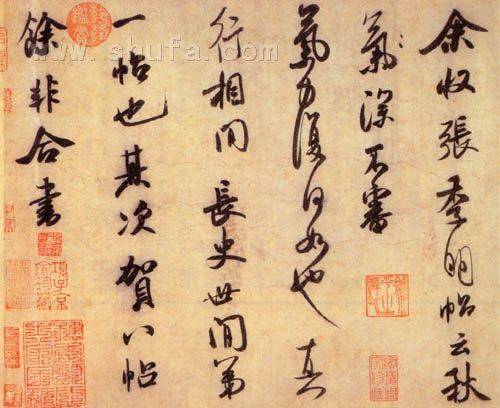 余收張季明帖云秋
氣深不審
氣力復何如也真
行相間長史世間第
一帖也其次賀八帖
餘非合書
www.shufa.com